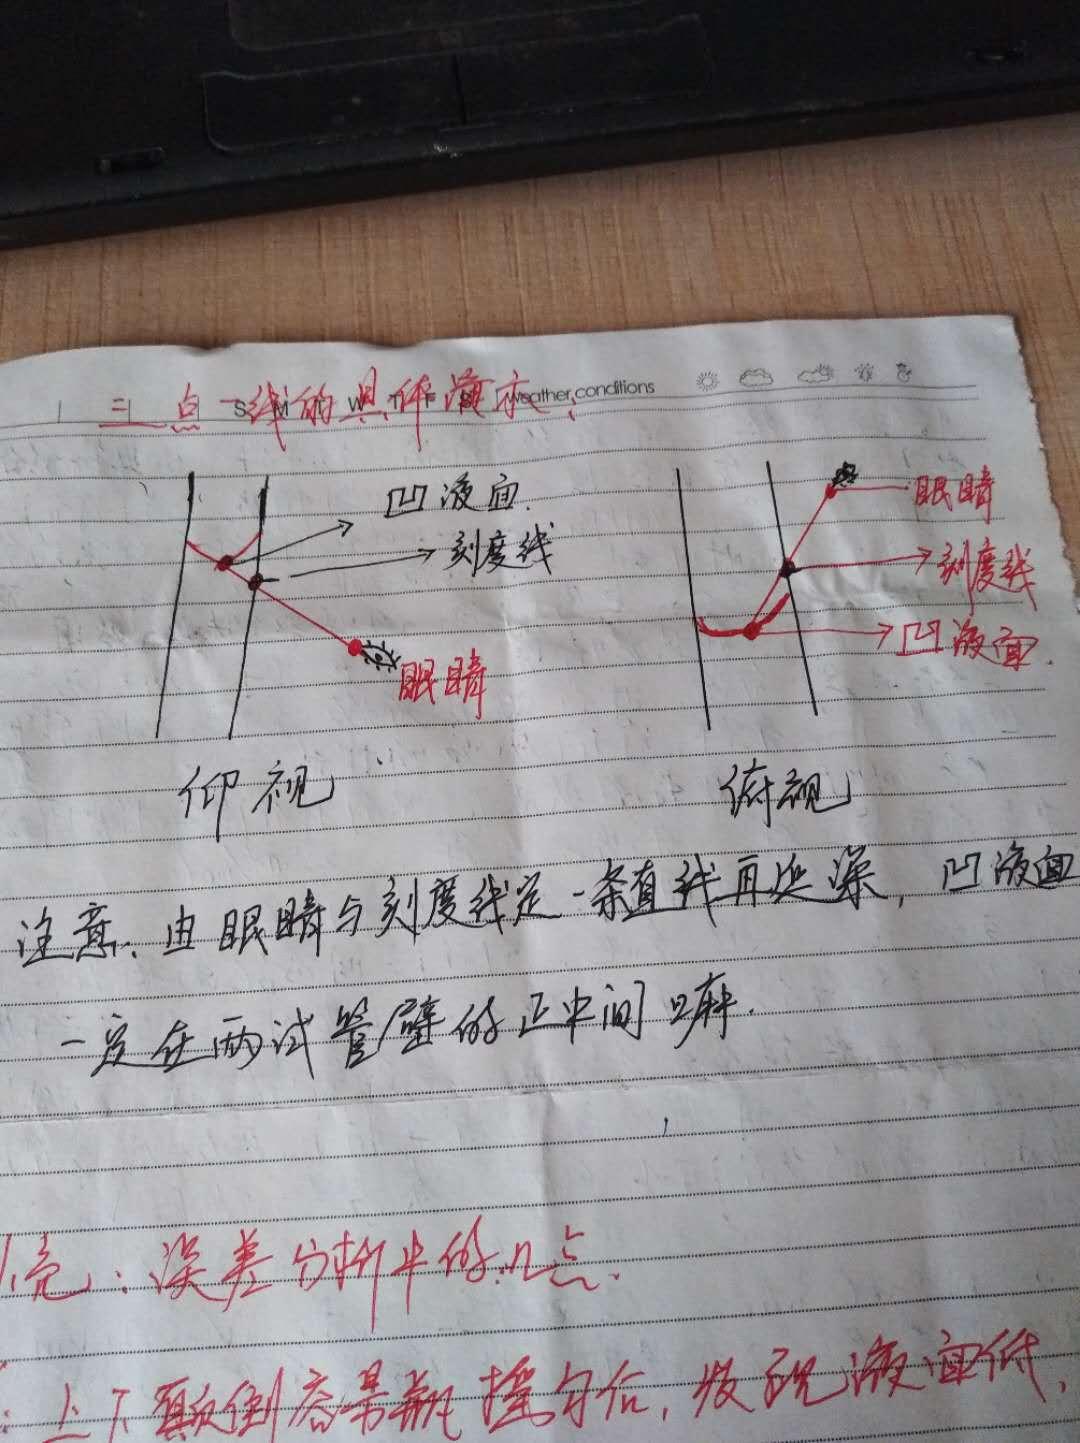 S M T W T F S weather conditions
三点一线的具体演示：
凹液面.
刻度线
眼睛
仰视
眼睛
刻度线
凹液面.
俯视
注意：由眼睛与刻度线定一条直线再延深，凹液面
一定在两试管壁的正中间
充：误差分析中的几点.
上下颠倒容量瓶摇匀后，发现液面低，